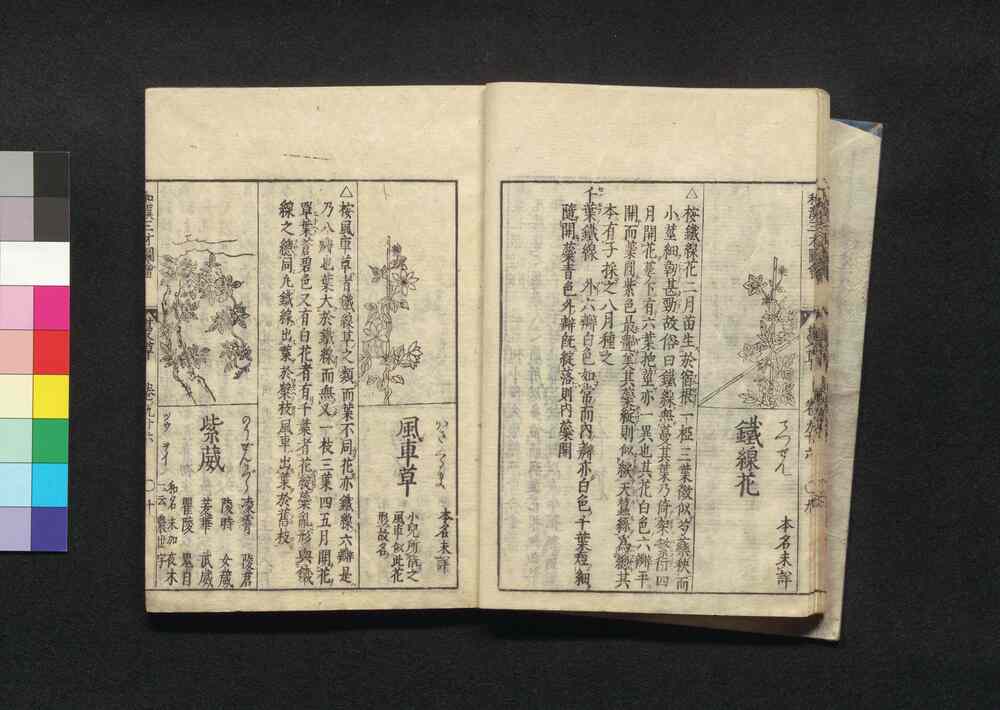 鐵線花
てつせん
本名未詳
△按鐵線花二月苗生於宿根一椏三葉微似芍藥秧而
小莖細剛甚勁故俗曰鐵線無蔓其葉乃倚架纏行四
月開花莖下有六葉抱莖亦一異也其花白色六瓣平
開而蘂間紫色最艷美其蘂縱則似
本有子採之八月種之
千葉鐵線 外六瓣白色如常而內瓣亦白色千葉短細
隨開蘂青色外瓣既綻落則內蘂開
風車草
かざくるま
本名未詳
小兒所翫之
風車似此花
形故名
△按風車草有鐵線草之類而葉不同花亦鐵線六瓣是
乃八瓣也葉大於鐵線而無叉一枝三葉四五月開花
單葉蒼碧色又有白花者有千葉者花蘂亂形與鐵
線之總同凡鐵線出葉於梨枝風車出葉於舊枝
紫葳
のうせんかづら
ツウ ヲイ
凌霄 陵苕
陵時 女葳
茇華 武葳
瞿陵 鬼目
和名 末加夜木
云農世宇
和漢三才圖會
卷九十六
〇十